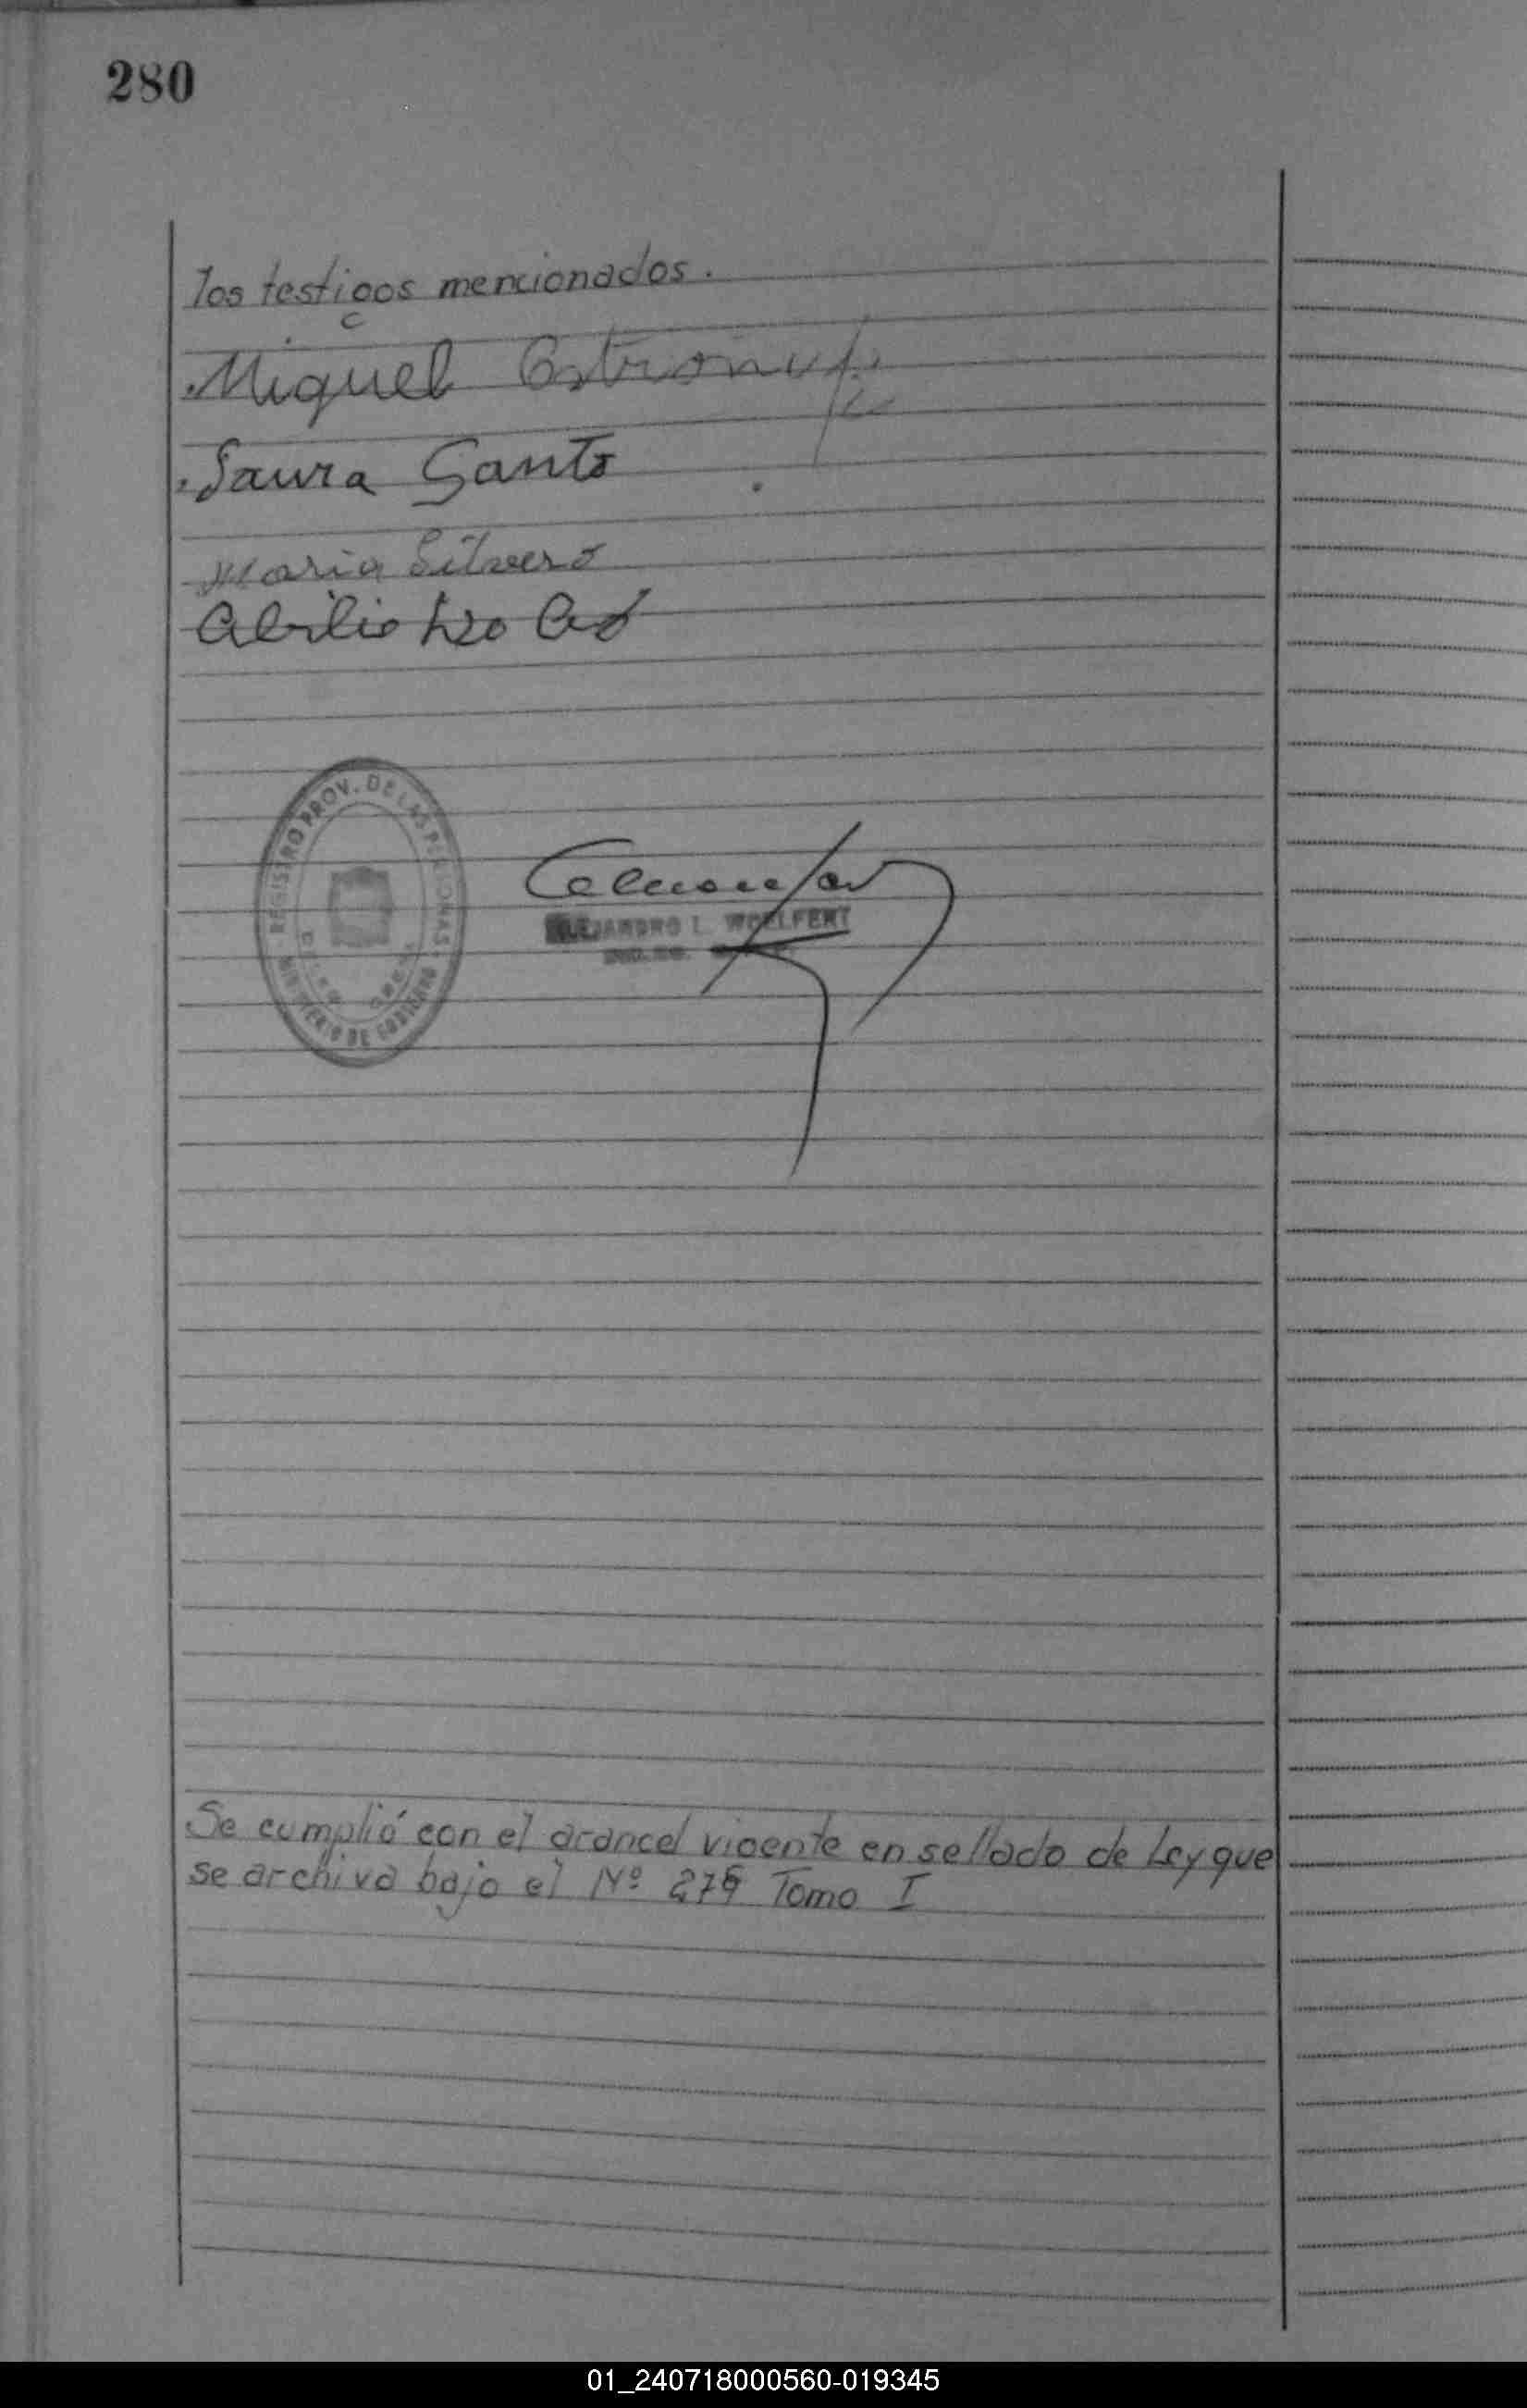 280
los testigos mencionados.
Miguel
Laura Santo
Maria Silvero
Abilio
REGISTRO PROV. DE LAS PERSONAS
MINISTERIO DE GOBIERNO
ALEJANDRO L. WOELFERT
Se cumplió con el arancel vigente en sellado de Ley que
se archiva bajo el Nº Tomo I
01_240718000560-019345